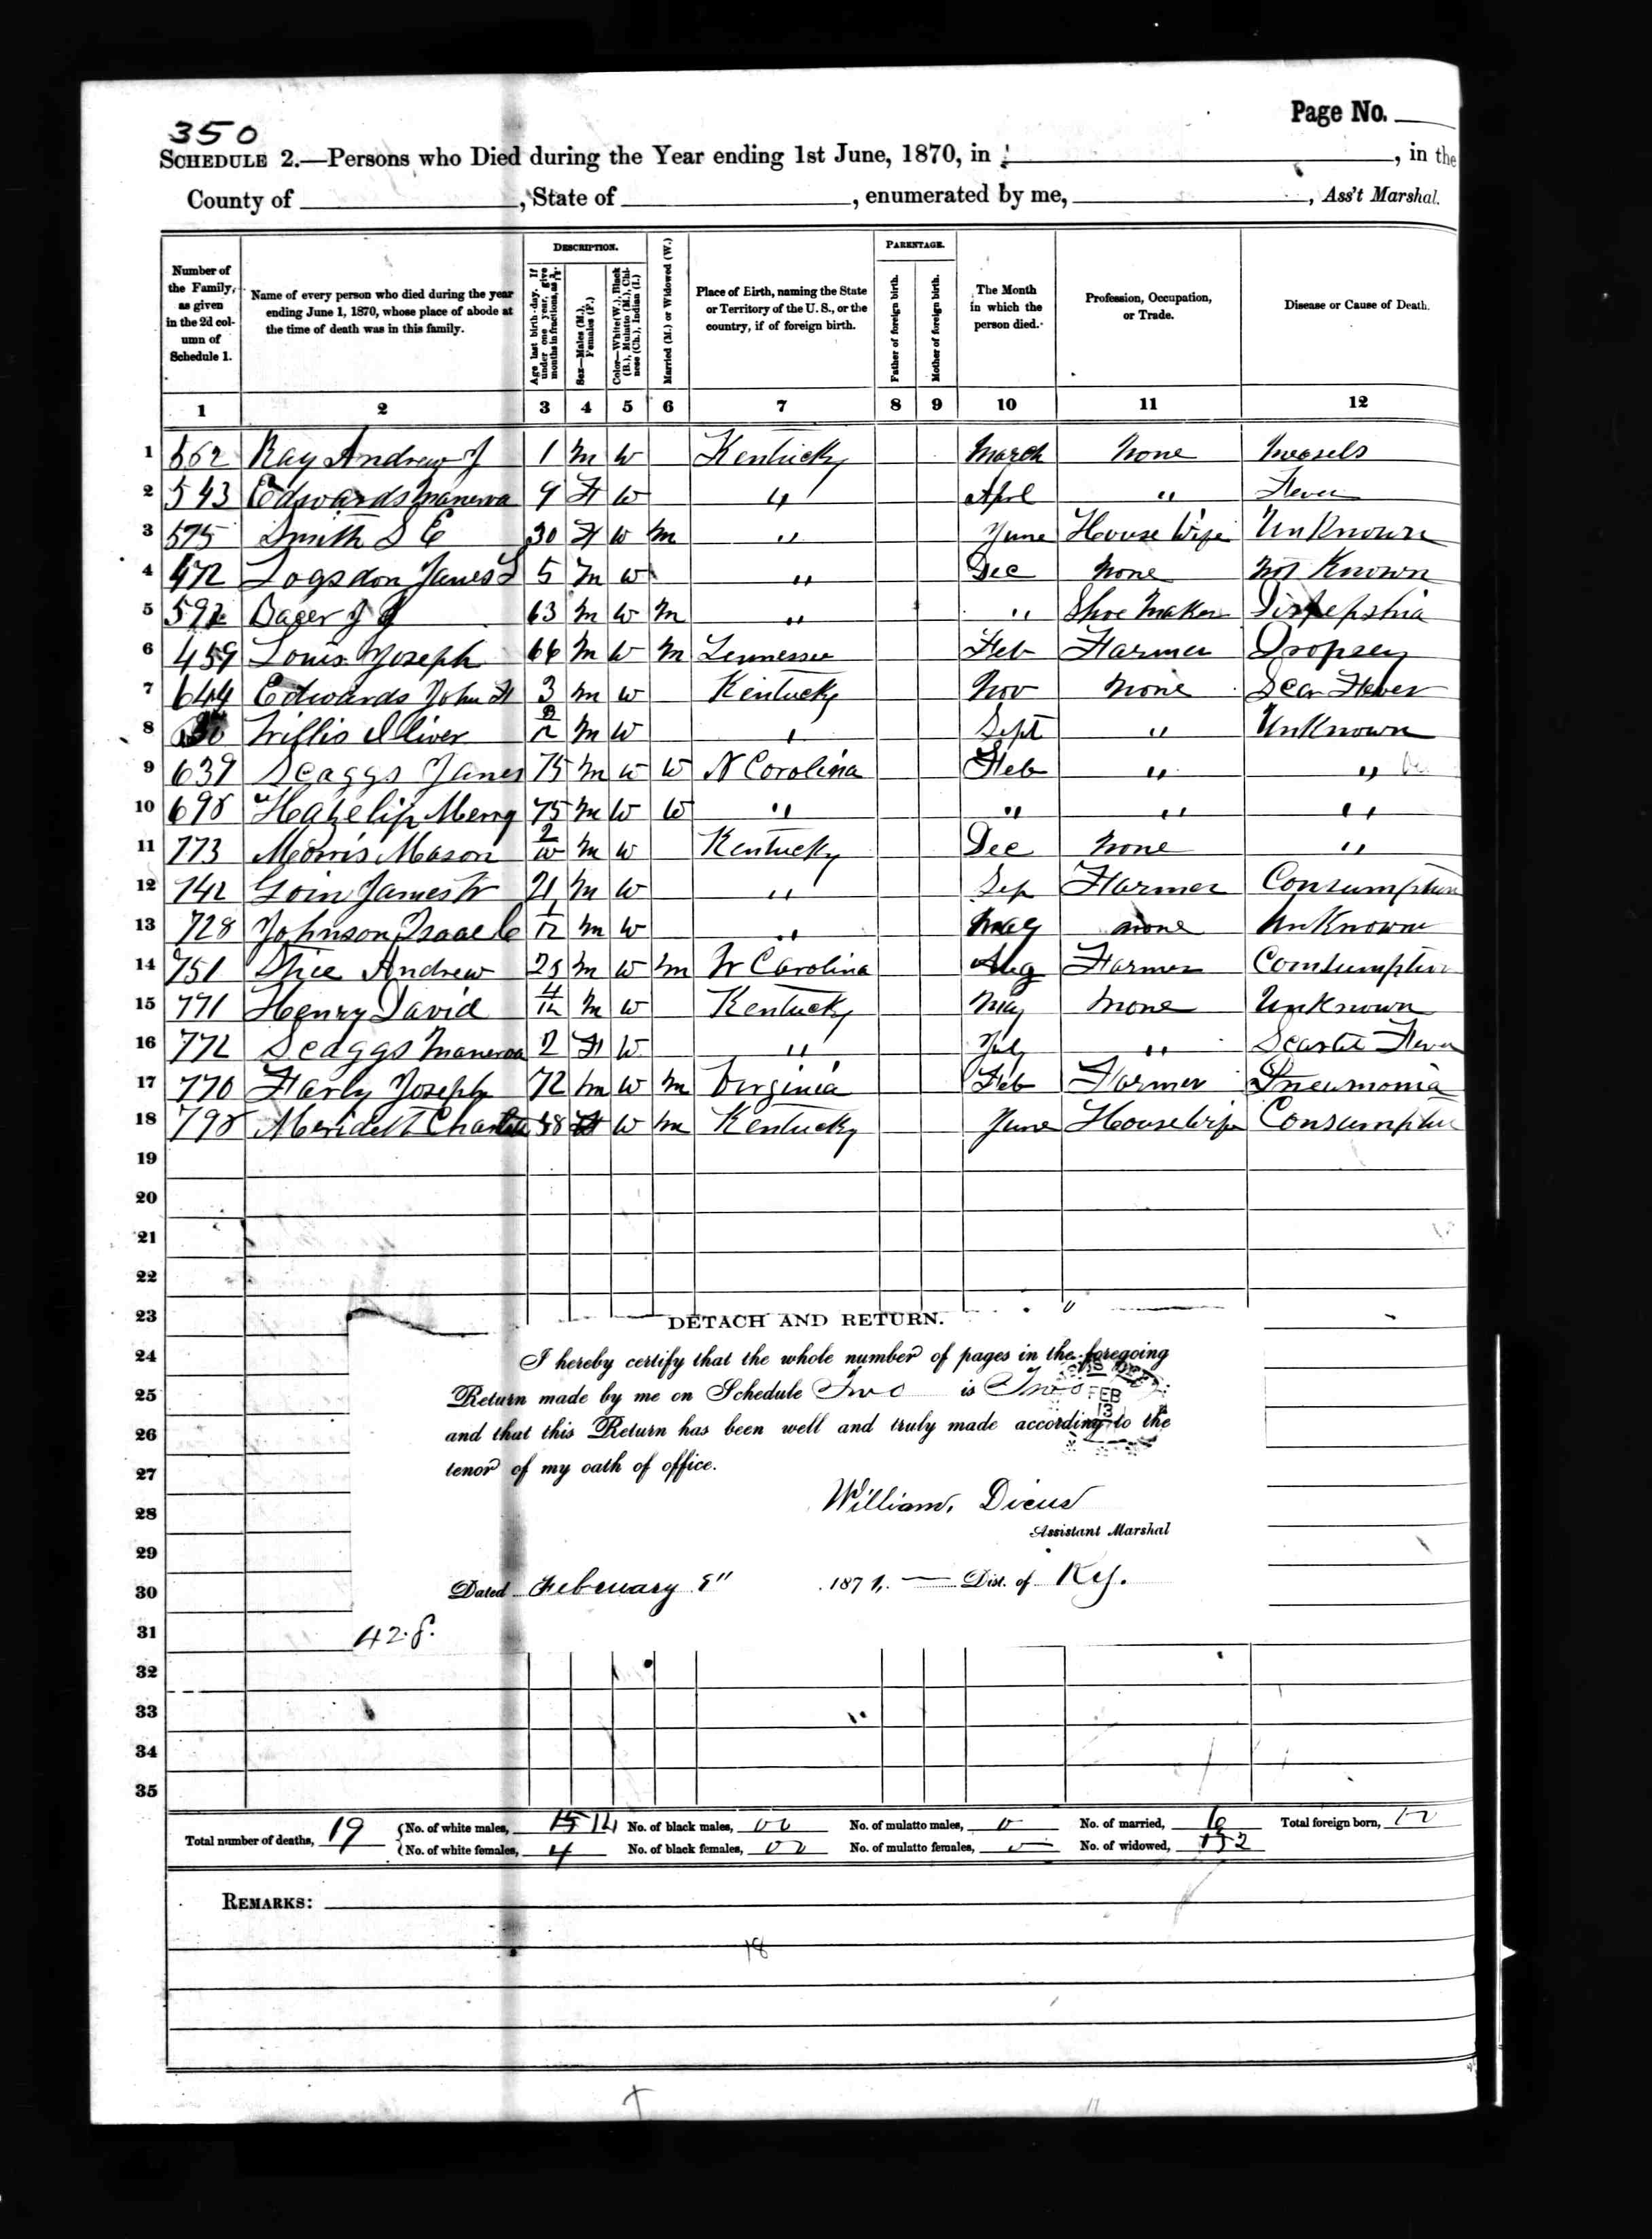 Page No.
350
SCHEDULE 2.—Persons who Died during the Year ending 1st June, 1870, in , in the
County of , State of , enumerated by me, , Ass't Marshal.
Number of the Family, as given in the 2d column of Schedule 1.
Name of every person who died during the year ending June 1, 1870, whose place of abode at the time of death was in this family.
DESCRIPTION.
Age last birth-day. If under one year, give months in fractions, as
Sex—Males (M.), Females (F.)
Color—White (W.), Black (B.), Mulatto (M.), Chinese (Ch.), Indian (I.)
Married (M.) or Widowed (W.)
Place of Birth, naming the State or Territory of the U. S., or the country, if of foreign birth.
PARENTAGE.
Father of foreign birth.
Mother of foreign birth.
The Month in which the person died.
Profession, Occupation, or Trade.
Disease or Cause of Death.
1 2 3 4 5 6 7 8 9 10 11 12
1 562 Ray Andrew J 1 M W Kentucky March None Measels
2 543 Edwards Manerva 9 F W " April " Fever
3 575 Smith S E 30 F W M " June House Wife UnKnown
4 472 Logsdon James L 5 M W " Dec None Not Known
5 592 J J 63 M W M " " Shoe Maker Dispepshia
6 459 Louis Joseph 66 M W M Tennessee Feb Farmer Dropsey
7 644 Edwards John F 3 M W Kentucky Nov None Scar Fever
8 Oliver M W " Sept " UnKnown
9 639 Scaggs James 75 M W W N Carolina Feb " "
10 698 Hazelip Merry 75 M W W " " " "
11 773 Morris Mason M W Kentucky Dec None "
12 742 Goin James W 21 M W " Sep Farmer Consumption
13 728 Johnson Isaac C 1/12 M W " May none UnKnown
14 751 Andrew M W M N Carolina Aug Farmer Comsumption
15 771 Henry David 4/12 M W Kentucky May None UnKnown
16 772 Scaggs Manerva 2 F W " July " Scarlet Fever
17 770 Farly Joseph 72 M W M Virginia Feb Farmer Pneumonia
18 798 F W M Kentucky June House Wife Consumption
19
20
21
22
23
DETACH AND RETURN.
24
I hereby certify that the whole number of pages in the foregoing
25
Return made by me on Schedule Two is Two
FEB
13
26
and that this Return has been well and truly made according to the
27
tenor of my oath of office.
28
William, Dicus
29
Assistant Marshal
30
Dated February 1871. Dist. of Ky.
31
32
33
34
35
Total number of deaths, 19
No. of white males, 15 14 No. of black males, 00 No. of mulatto males, 0 No. of married, 6 Total foreign born,
No. of white females, 4 No. of black females, 00 No. of mulatto females, 0 No. of widowed, 2
REMARKS:
18